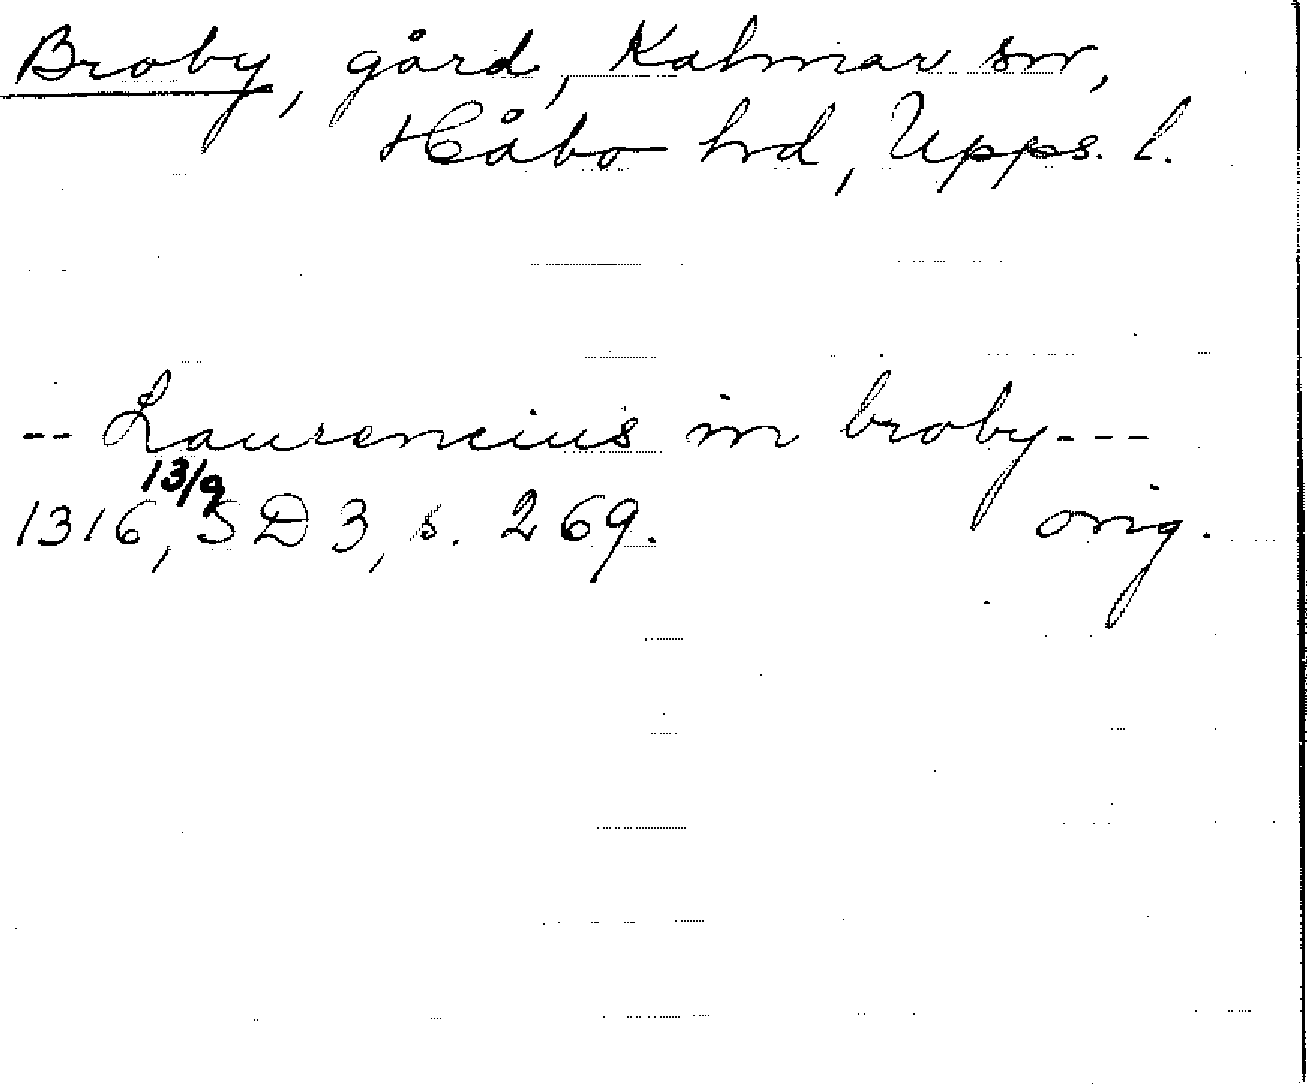 Broby, gård, Kalmar sn,
Håbo hd, Upps. l.
-- Laurencius in broby---
13/9
1316, SD 3, s. 269. orig.